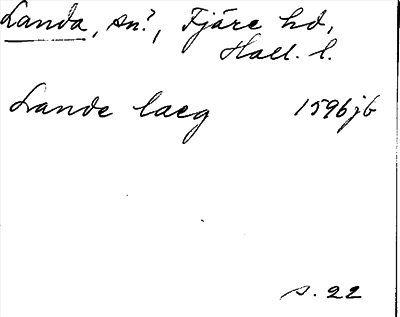 Landa, sn?, Fjäre hd,
Hall. l.
Lande laeg 1596 jb
s. 22